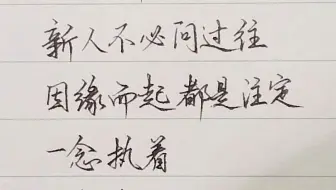 新人不必问过往
因缘而起都是注定
一念执着